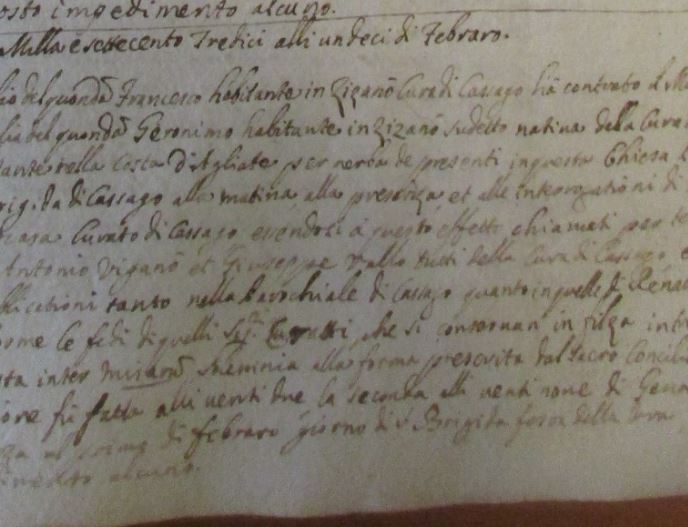 osto impedimento alcuno.
Milla e settecento Tredici alli undeci di Febraro.
del quondã Francesco habitante in Zizanõ Cura di Cassago hà contrato il
del quondã Geronimo habitante in Zizanõ sudetto natina della Cura
tante nella Costa d'Agliate per verba de presenti in questa Chiesa
Brig.da di Cassago alla matina alla presenza et alle Interogationi di
Curato di Cassago essendoci à questo effetto chiamati per
Antonio Viganò et Giuseppe tutti della Cura di Cassago
blicationi tanto nella Parochiale di Cassago quanto in quelle di Renat
orme le fedi di quelli Sig.ri Curatti che si conservan in filza
inter missarũ solemnia alla forma prescrita dal Sacro Concili
ione fù fatta alli venti due la seconda alli venti nove di Gena
za al primo di febraro giorno di S Brigita della Cura
alcuno.